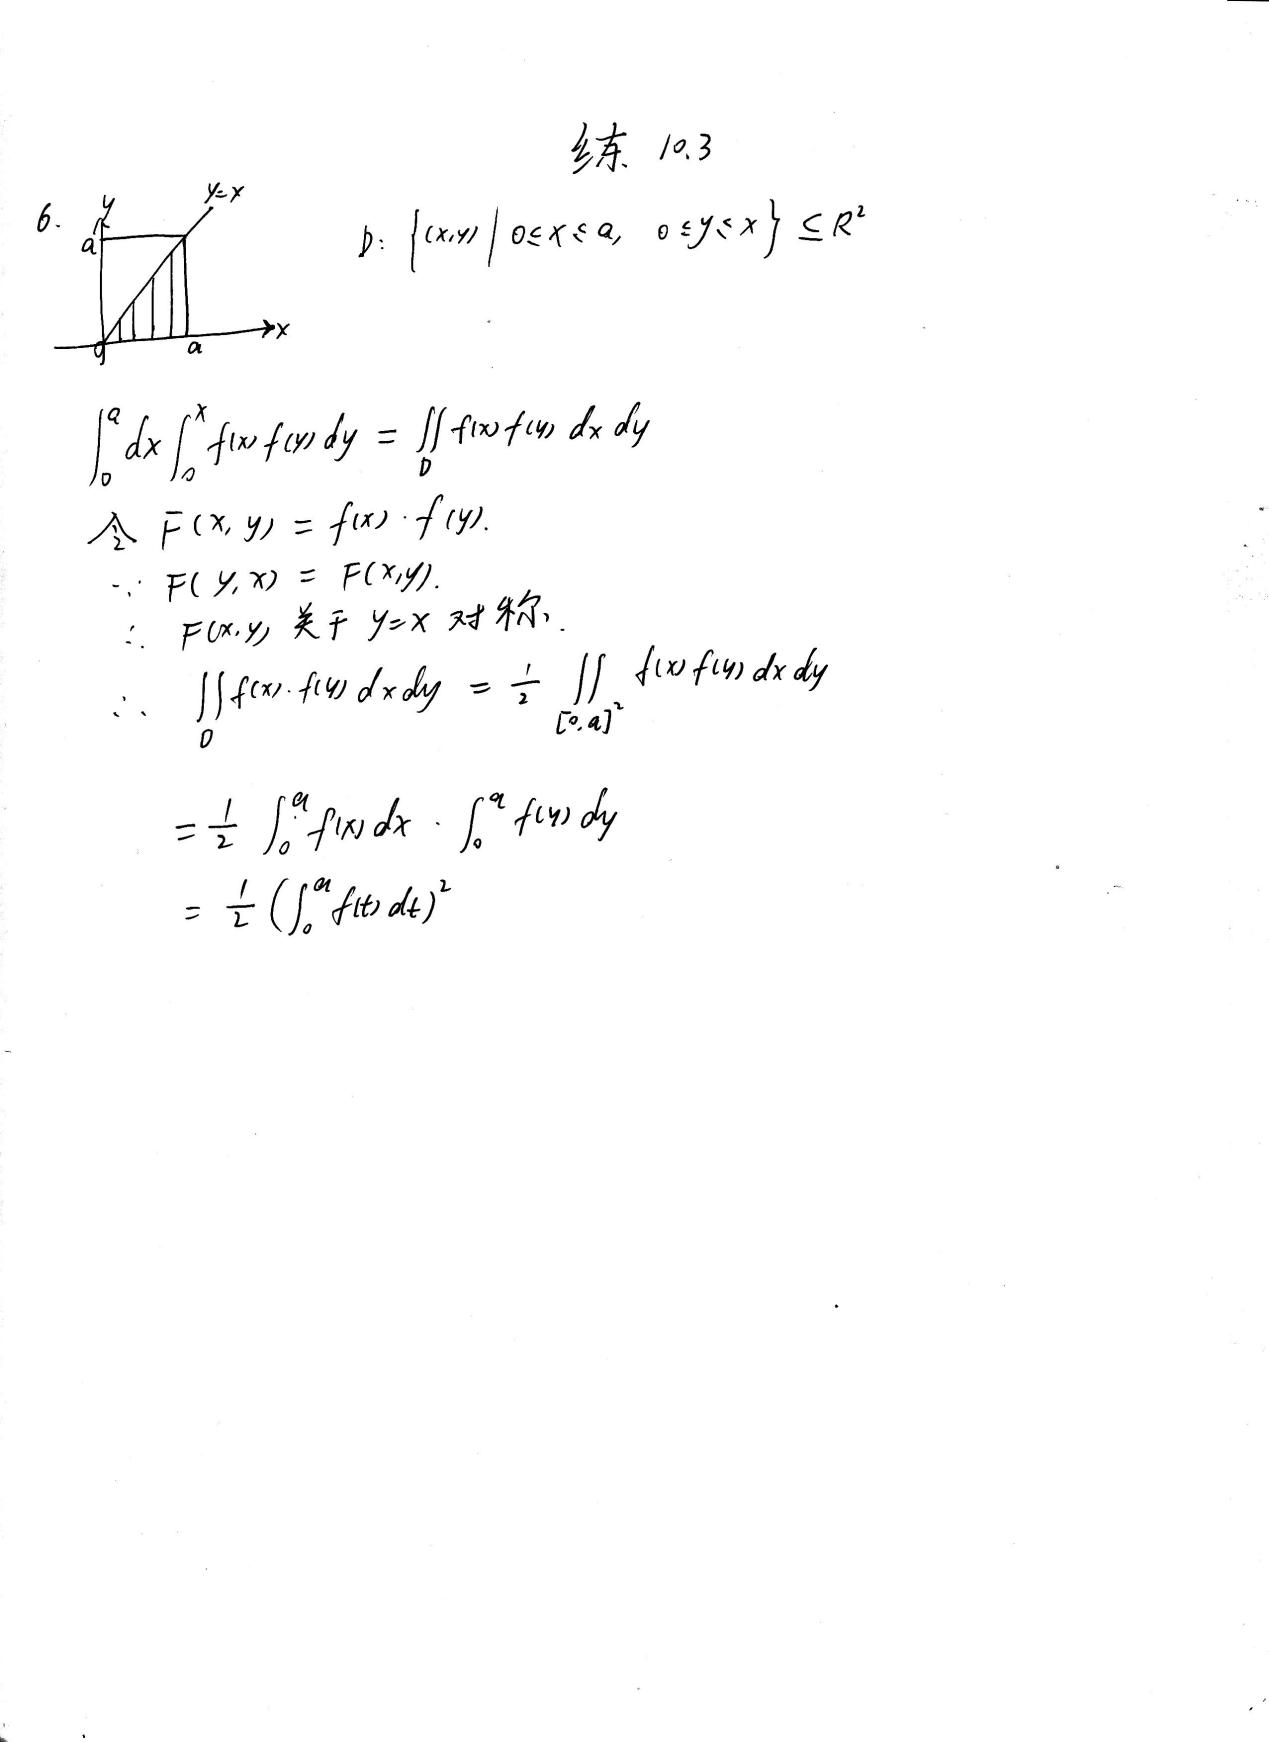 练 10.3
6. y a 0 a x y=x
D: {(x,y) | 0≤x≤a, 0≤y≤x} ⊆ R²
∫₀ᵃ dx ∫₀ˣ f(x) f(y) dy = ∬_D f(x) f(y) dx dy
令 F(x, y) = f(x) · f(y).
∵ F(y, x) = F(x,y).
∴ F(x,y) 关于 y=x 对称.
∴ ∬_D f(x)·f(y) dx dy = 1/2 ∬_{[0,a]²} f(x) f(y) dx dy
= 1/2 ∫₀ᵃ f(x) dx · ∫₀ᵃ f(y) dy
= 1/2 (∫₀ᵃ f(t) dt)²